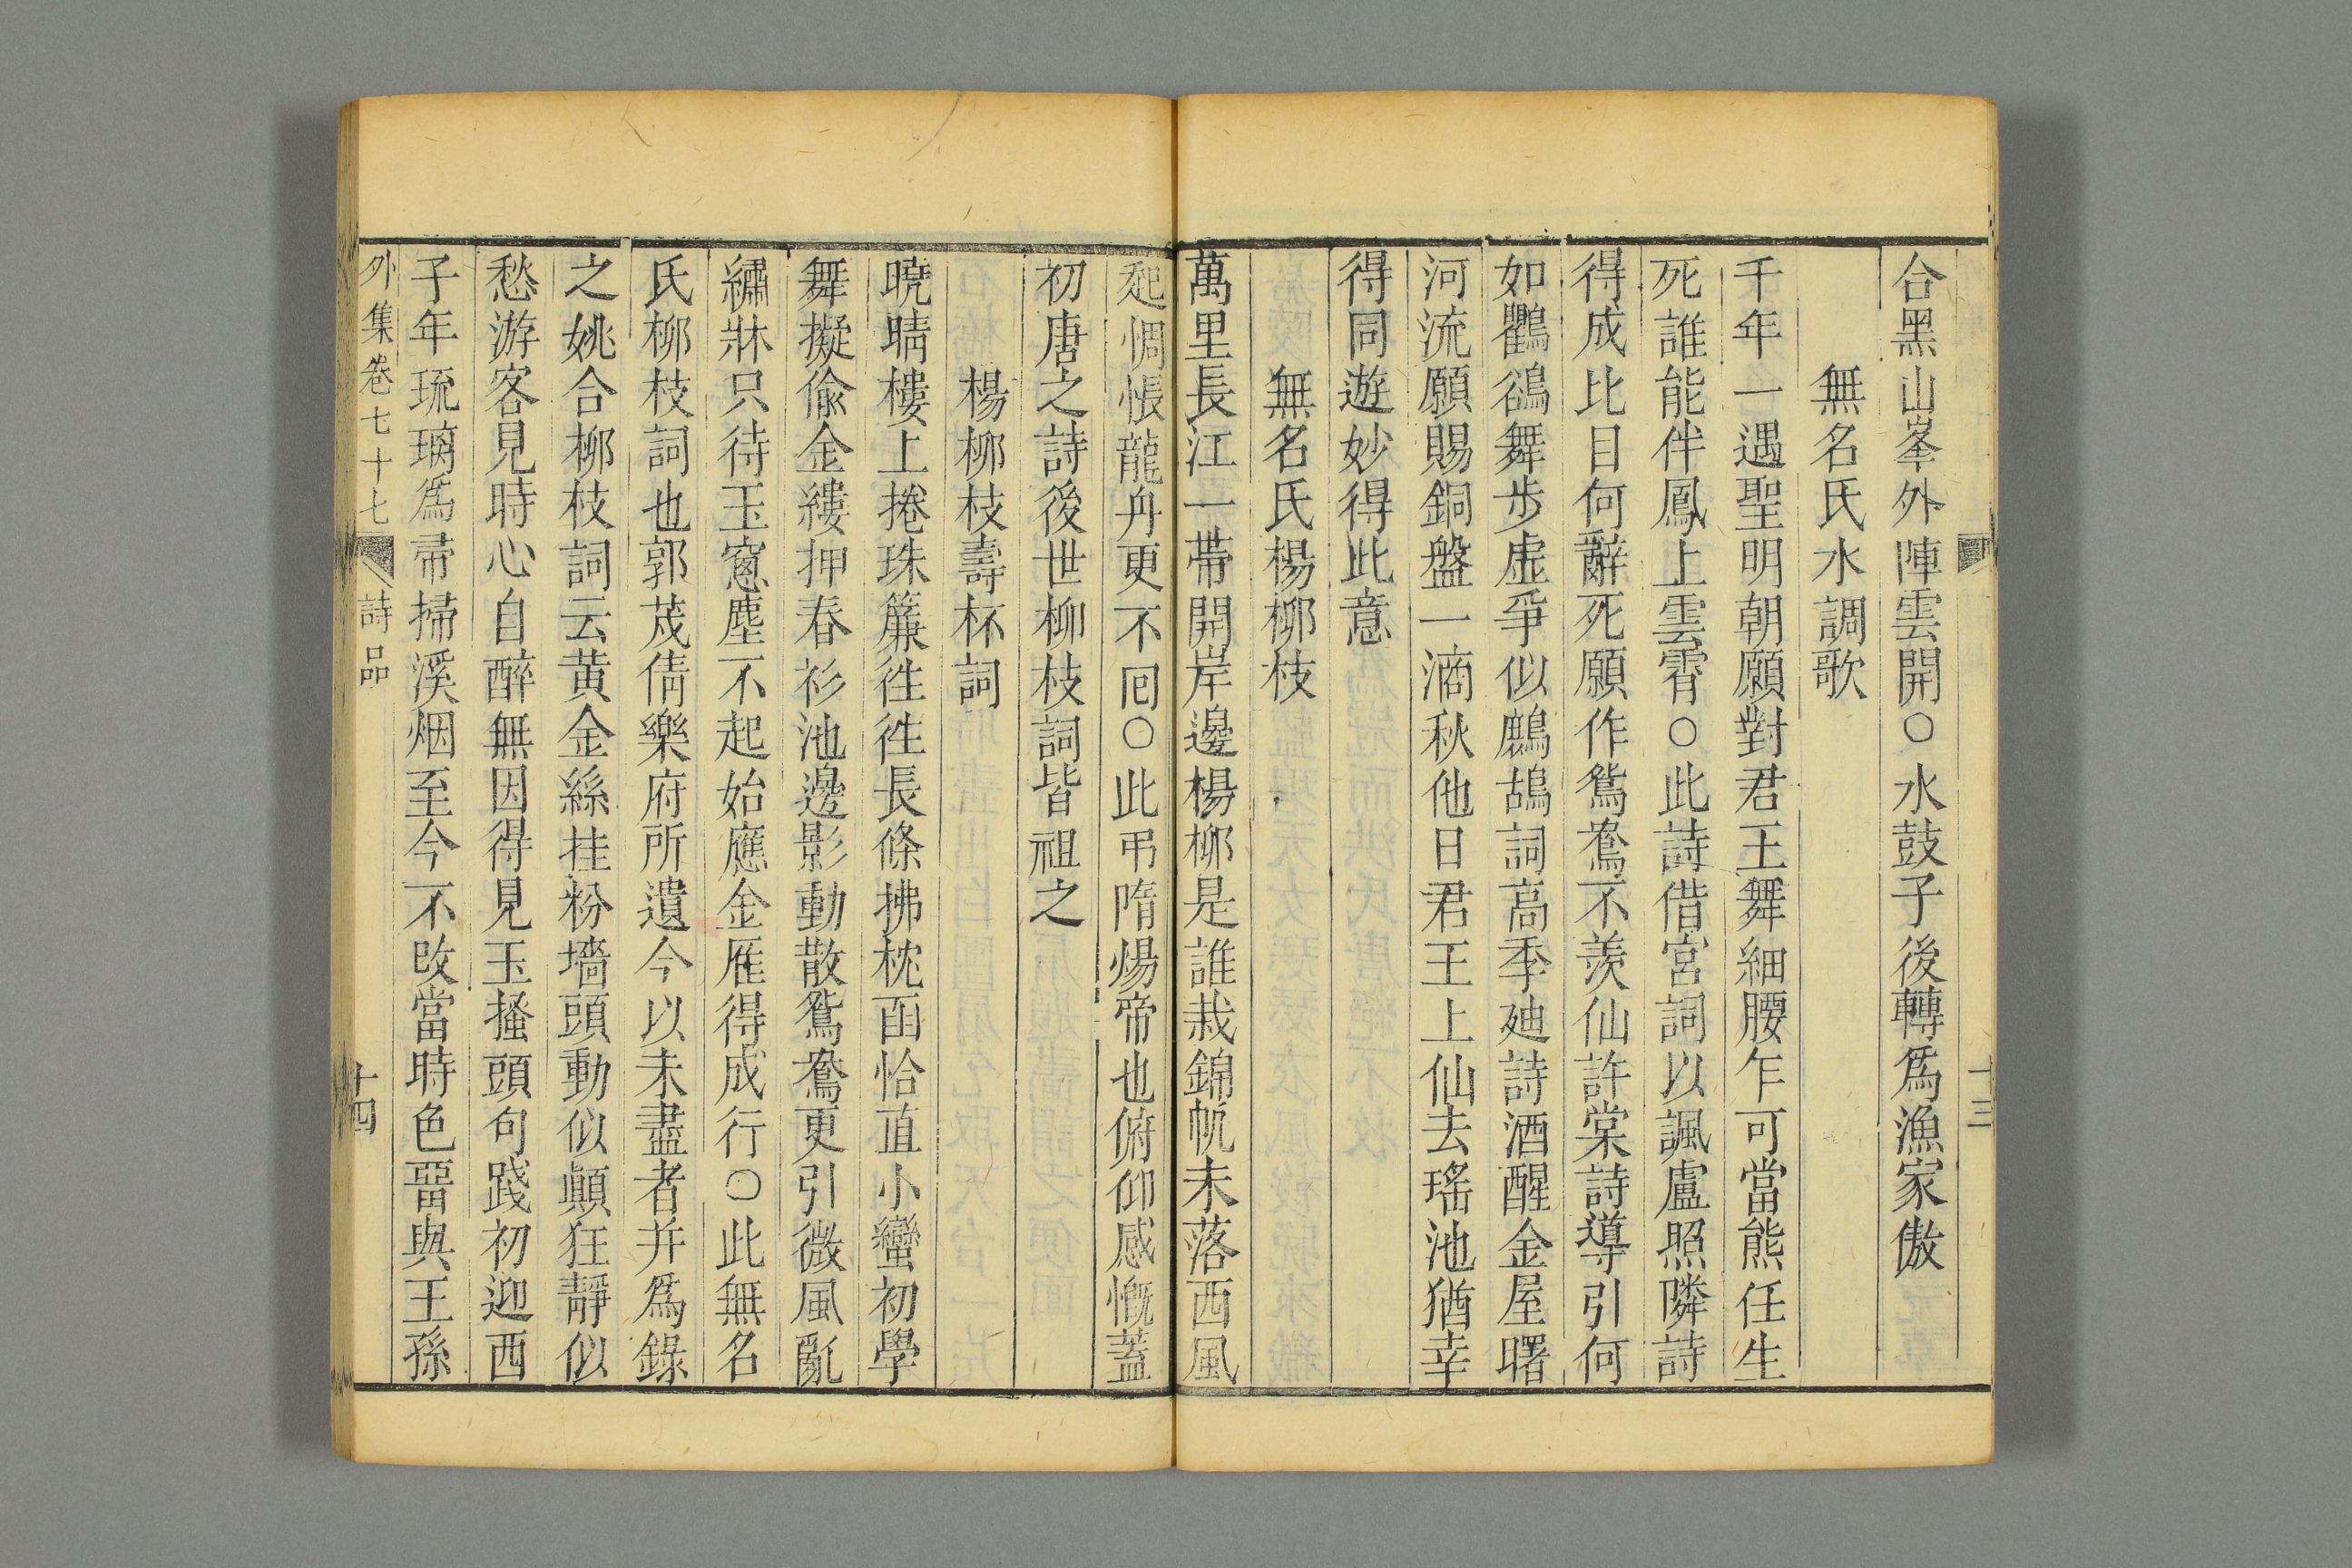 合黑山峯外陣雲開○水鼓子後轉爲漁家傲
無名氏水調歌
千年一遇聖明朝願對君王舞細腰乍可當熊任生
死誰能伴鳳上雲霄○此詩借宮詞以諷盧照隣詩
得成比目何辭死願作鴛鴦不羨仙許棠詩導引何
如鸜鵒舞步虛爭似鷓鴣詞高季廸詩酒醒金屋曙
河流願賜銅盤一滴秋他日君王上仙去瑤池猶幸
得同遊妙得此意
無名氏楊柳枝
萬里長江一帶開岸邊楊柳是誰栽錦帆未落西風
起惆悵龍舟更不囘○此弔隋煬帝也俯仰感慨蓋
初唐之詩後世柳枝詞皆祖之
楊柳枝壽杯詞
曉晴樓上捲珠簾徃徃長條拂枕函恰直小蠻初學
舞擬偸金縷押春衫池邊影動散鴛鴦更引微風亂
繡牀只待玉窻塵不起始應金雁得成行○此無名
氏柳枝詞也郭茂倩樂府所遺今以未盡者并爲錄
之姚合柳枝詞云黃金絲挂粉墻頭動似顚狂靜似
愁游客見時心自醉無因得見玉搔頭句踐初迎西
子年琉璃爲帚掃溪烟至今不改當時色畱與王孫
外集卷七十七
詩品
十四
十三